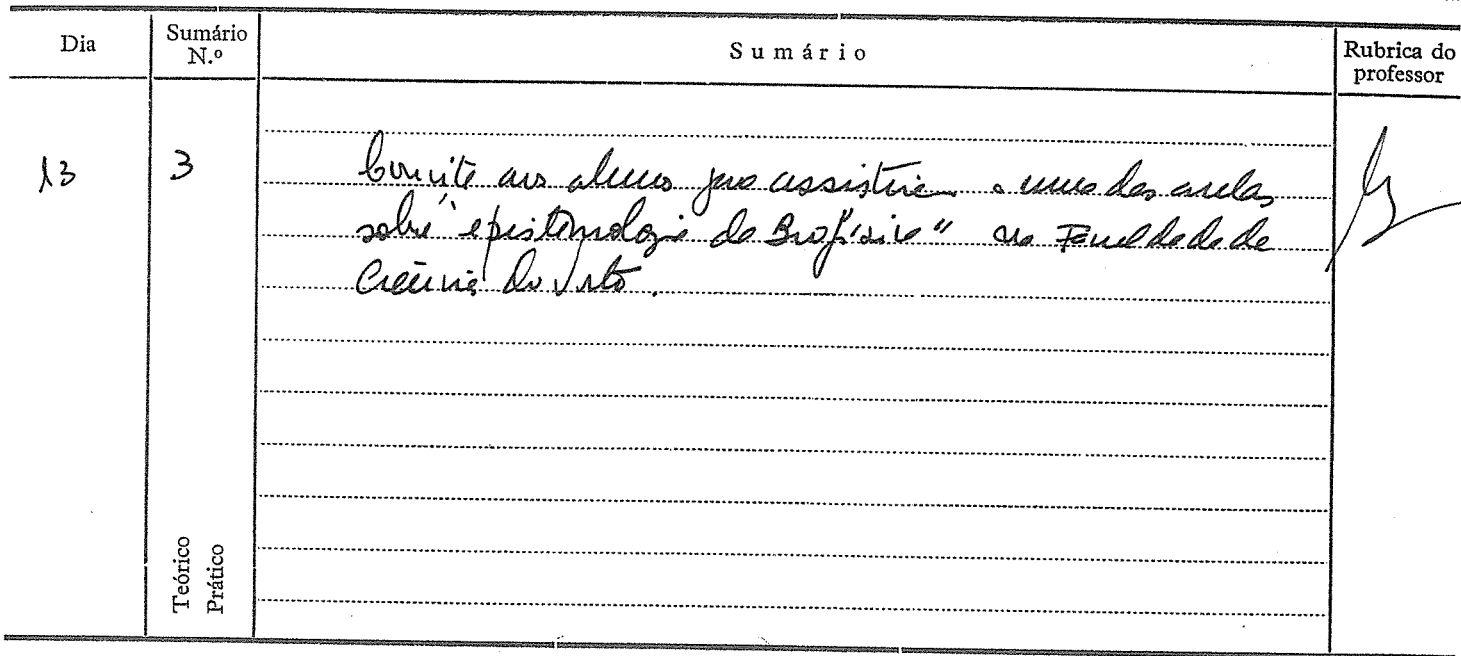 Dia
Sumário N.º
Sumário
Rubrica do professor
13
3
Convite aos alunos para assistirem a uma das aulas
sobre "epistemologia da Biofísica" na Faculdade de
Ciências do Porto.
Teórico
Prático